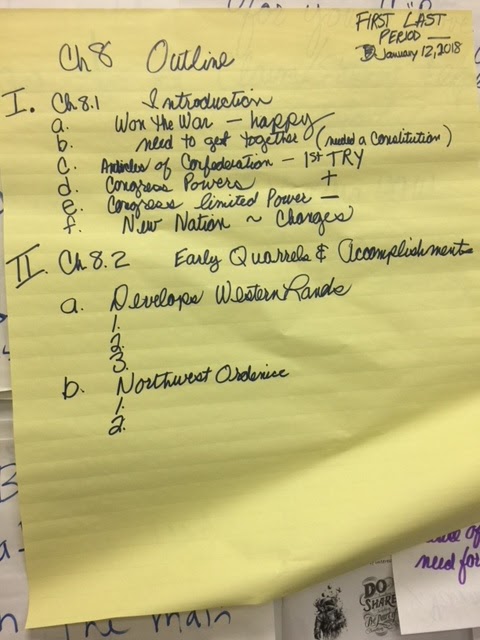 FIRST LAST
PERIOD __
January 12, 2018
Ch 8 Outline
I. Ch 8.1 Introduction
a. Won the War – happy
b. need to get together (needed a Constitution)
c. Articles of Confederation – 1st TRY
d. Congress Powers +
e. Congress limited Power –
f. New Nation ~ Changes
II. Ch 8.2 Early Quarrels & Accomplishments
a. Develops Western Lands
1.
2.
3.
b. Northwest Ordenice
1.
2.
need for
DO
SHARE
The main